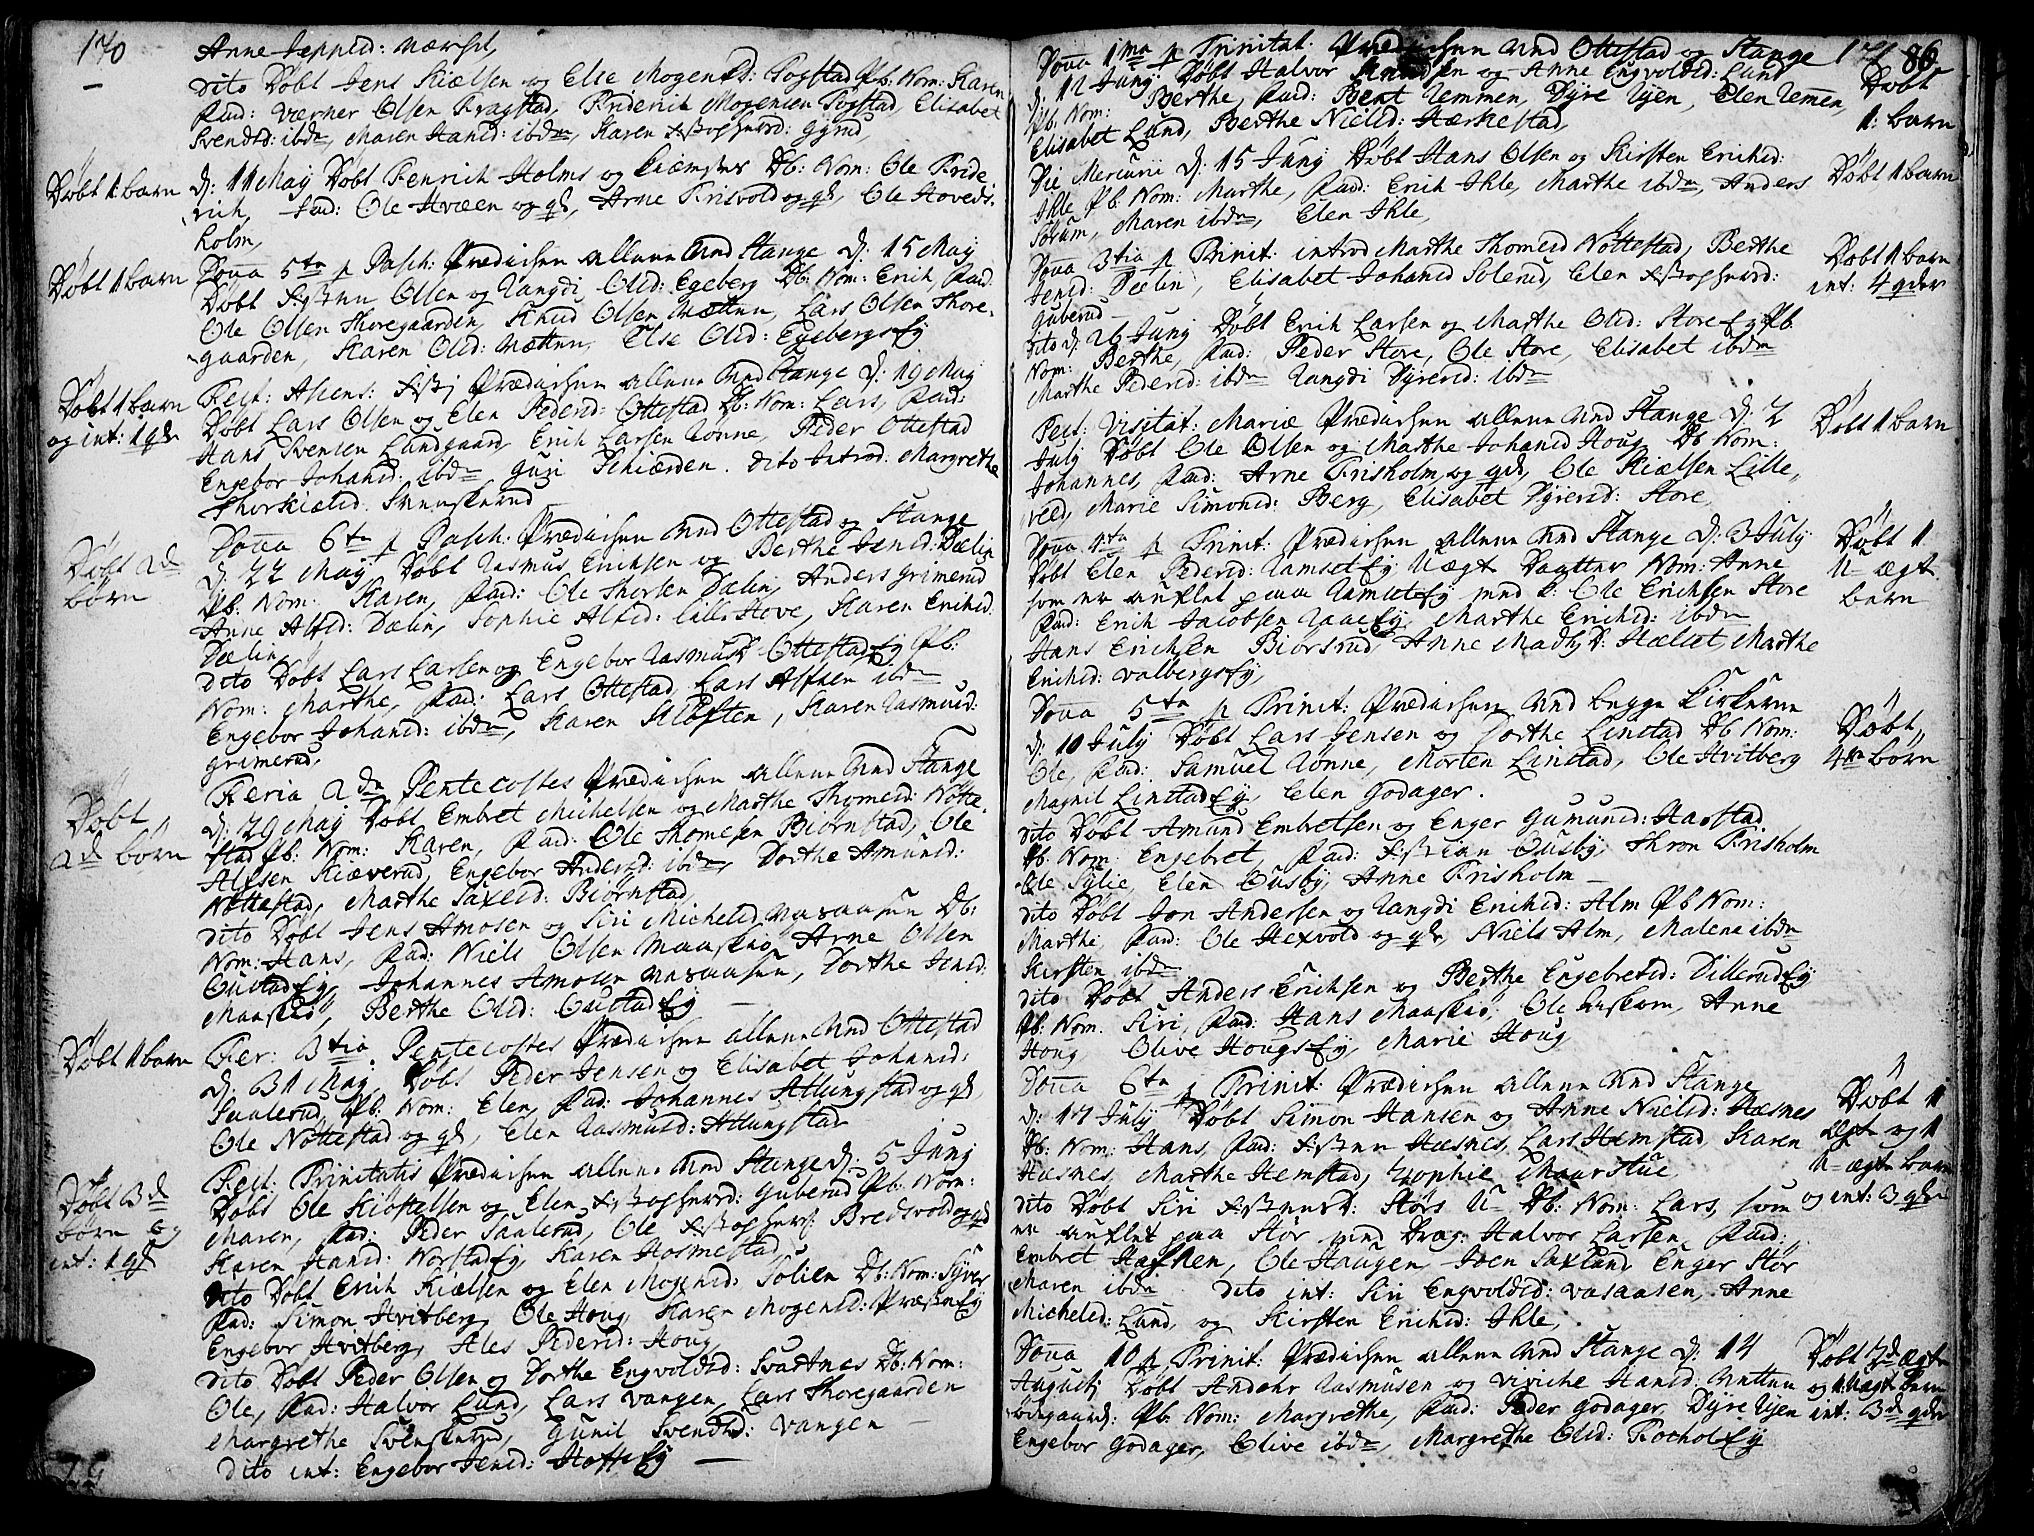 170
Anne Jeppesd: Mærset,
dito Døbt Jens Kielsen og Else Mogensd: Fogstad Pb: Nom: Karen
Fad: Værner Olsen Kragstad, Friderich Mogensen Fogstad, Elisabet
Svendsd: ibdn, Maren Hansd: ibdn, Karen
Døbt 1 barn
d: 11 Maij Døbt Henrich Holms og Db: Nom: Ole Fride
rich, Fad: Ole Hvæen og qd, Arne Frisvold og qd, Ole Hoveds,
holm,
Døbt 1 barn
Doca 5ta p Pasch: Prædichen allene ved Stange d: 15 Maij
Døbt Olsen og Rangdi Olsd: Egeberg Db: Nom: Erich, Fad:
Ole Olsen Thoregaarden, Knud Olsen Metten, Lars Olsen Thore,
gaarden, Karen Olsd: Metten, Else Olsd: Egebergs Ey
Døbt 1 barn
og int: 1 qd
Fest: Ascens: Prædichen allene ved Stange d: 19 Maij
Døbt Lars Olsen og Elen Pedersd: Ottestad Db: Nom: Lars, Fad:
Hans Svensen Lundgaard, Erich Larsen Rønne, Peder Ottestad
Engebor Johansd: ibdn Guri. dito Introd: Margrethe
Thorkielsd: Svenskerud
Døbt 2de
børn
Doca 6ta p Pasch: Prædichen ved Ottestad og Stange
d: 22 Maij Døbt Rasmus Erichsen og Berthe Jensd: Dælin
Pb: Nom: Karen, Fad: Ole Thorsen Dælin, Anders Grimerud
Anne Alfsd: Dælin, Sophie Alfsd: Lille Hove, Karen Erichsd
Dælin
dito Døbt Lars Larsen og Engebor Rasmusd: Ottestad Ey Pb:
Nom: Marthe, Fad: Lars Ottestad, Lars Alfsen ibdn
Engebor Johansd: ibdn, Karen Kløften, Karen Rasmusd:
Grimerud,
Døbt
2de børn
Feria 2da Pentecostes Prædichen allene ved Stange
d: 29 Maij Døbt Embret Michelsen og Marthe Thomesd: Nøtte,
stad Pb: Nom: Karen, Fad: Ole Thomesen Biørnstad, Ole
Alfsen Kieverud, Engebor Andersd: ibdn, Dorthe Amundsd:
Nøttestad, Marthe Saxesd: Biørnstad,
dito Døbt Jens Amosen og Siri Michelsd Vasaasen Db:
Nom: Hans, Fad: Niels Olsen Maaskio, Arne Olsen
Oustad Ey, Johannes Amosen Vasaasen, Dorthe Jensd:
Maaskio, Berthe Olsd: Oustad Ey
Døbt 1 barn
Fer: 3tia Pentecostes Prædichen allene ved Ottestad
d: 31 Maij, Døbt Peder Jensen og Elisabet Johansd:
Saalerud, Pb: Nom: Elen, Fad: Johannes Atlungstad og qd,
Ole Nøttestad og qd, Elen Rasmusd: Atlungstad
Døbt 3de
børn og
int: 1 qd
Fest: Trinitatis Prædichen allene ved Stange d: 5 Junij
Døbt Ole Kiøstelsen og Elen: Guberud Pb: Nom:
Maren, Fad: Peder Saalerud, Ole Bredsvold og qd
Karen Hansd: Norstad Ey, Karen Hosmestad,
dito Døbt Erich Kielsen og Elen Mogensd: Solien Db: Nom: Syver
Fad: Simon Hvitberg, Ole Houg, Karen Mogensd:
Engebor Hvitberg, Ales Pedersd: Houg
dito Døbt Peder Olsen og Dorthe Engvoldsd: Svartnes Db: Nom:
Ole, Fad: Halvor Lund, Lars Vangen, Lars Thoregaarden
Margrethe Svenskerud, Gunil Svendsd: Vangen
dito int: Engebor Jensd: Hoffs Ey
171 86
Doca 1ma p Trinitat: Prædichen ved Ottestad og Stange
Døbt
1: barn
d: 12 Junij Døbt Halvor Knudsen og Anne Engvoldsd: Lund
Pb: Nom: Berthe, Fad: Bent Uemmen, Dyre Ujen, Elen Uemen,
Elisabet Lund, Berthe Nielsd: Hærkestad,
Døbt 1 barn
Die Mercurii d: 15 Junij Døbt Hans Olsen og Kirsten Erichsd:
Ihle Pb: Nom: Marthe, Fad: Erich Ihle, Marthe ibdn, Anders
Sørum, Maren ibdn, Elen Ihle,
Døbt 1 barn
int: 4 qder
Doca 3tia p Trinit: introd Marthe Thomesd Nøttestad, Berthe
Jensd: Dælin, Elisabet Johansd Solerud, Elen
Guberud
dito d: 26 Junij Døbt Erich Larsen og Marthe Olsd: Store Ey Pb
Nom: Berthe, Fad: Peder Store, Ole Store, Elisabet ibdn
Marthe Pedersd: ibdn Rangdi Dyresd: ibdn
Døbt 1 barn
Fest: Visitat: Mariæ Prædichen allene ved Stange d: 2
Julij Døbt Ole Olsen og Marthe Johansd Houg Db Nom:
Johannes, Fad: Arne Frisholm og qd, Ole Kielsen Lille,
reed, Marie Simonsd: Berg, Elisabet Dyresd: Store,
Døbt 1
U-ægt
barn
Doca 4ta p Trinit: Prædichen allene ved Stange d: 3 Julij
Døbt Elen Pedersd: Ramset Ey U-ægt Daatter Nom: Anne
som er auflet paa Ramset Ey med K: Ole Erichsen Store
Fad: Erich Jacobsen Ey, Marthe Erichsd: ibdn
Hans Erichsen Biørsrud, Anne Madsd: Hælset, Marthe
Erichsd: Valbergs Ey,
Døbt,
4re børn
Doca 5ta p Trinit: Prædichen ved begge Kirkerne
d: 10 Julij Døbt Lars Jensen og Dorthe Linstad Db Nom:
Ole, Fad: Samuel Rønne, Morten Linstad, Ole Hvitberg
Magnil Linstad Ey, Elen Godager.
dito Døbt Amund Embretsen og Enger Gumunsd: Harstad
Pb: Nom: Engebret, Fad: Ousby, Thron Frisholm
Ole Sylie, Elen Ousby, Anne Frisholm
dito Døbt Jon Andersen og Rangdi Erichsd: Alm Pb Nom:
Marthe, Fad: Ole Hexvold og qd, Niels Alm, Malene ibdn
Kirsten ibdn
dito Døbt Anders Erichsen og Berthe Engebretsd: Dillerud Ey
Pb: Nom: Siri, Fad: Hans Maaskio, Ole, Anne
Houg, Olive Hougs Ey, Marie Houg
Døbt 1
ægte og 1
U-ægte barn
og int: 3 qder
Doca 6ta p Trinit: Prædichen allene ved Stange
d: 17 Julij Døbt Simon Hansen og Anne Nielsd: Hæsnes
Db: Nom: Hans, Fad: Hæsnes, Lars Hemstad, Karen
Hæsnes, Marthe Hemstad, Sophie Maarstue
dito Døbt Siri: Størs U- Db: Nom: Lars, som
er auflet paa Stør med Drag: Halvor Larsen, Fad:
Embret, Ole Haugen, Joen Saxlund, Enger Stør
Maren ibdn dito int: Siri Engvoldsd: Vasaasen, Anne
Michelsd: Lund, og Kirsten Erichsd: Ihle,
Døbt ægte
og 1 U-ægt barn
int: 3de qder
Doca 10 p Trinit: Prædichen allene ved Stange d: 14
Augustj Døbt Rasmusen og Hansd: Metten
Pb: Nom: Margrethe, Fad: Peder Godager, Dyre Ujen
Engebor Godager, Olive ibdn, Margrethe Olsd: